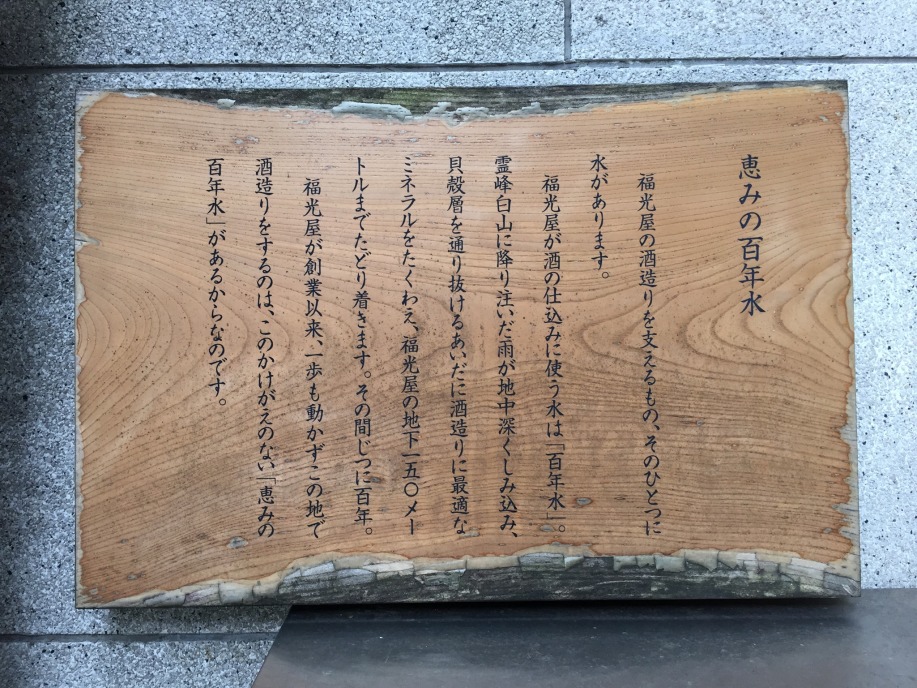 恵みの百年水
福光屋の酒造りを支えるもの、そのひとつに
水があります。
福光屋が酒の仕込みに使う水は「百年水」。
霊峰白山に降り注いだ雨が地中深くしみ込み、
貝殻層を通り抜けるあいだに酒造りに最適な
ミネラルをたくわえ、福光屋の地下一五〇メー
トルまでたどり着きます。その間じつに百年。
福光屋が創業以来、一歩も動かずこの地で
酒造りをするのは、このかけがえのない「恵みの
百年水」があるからなのです。